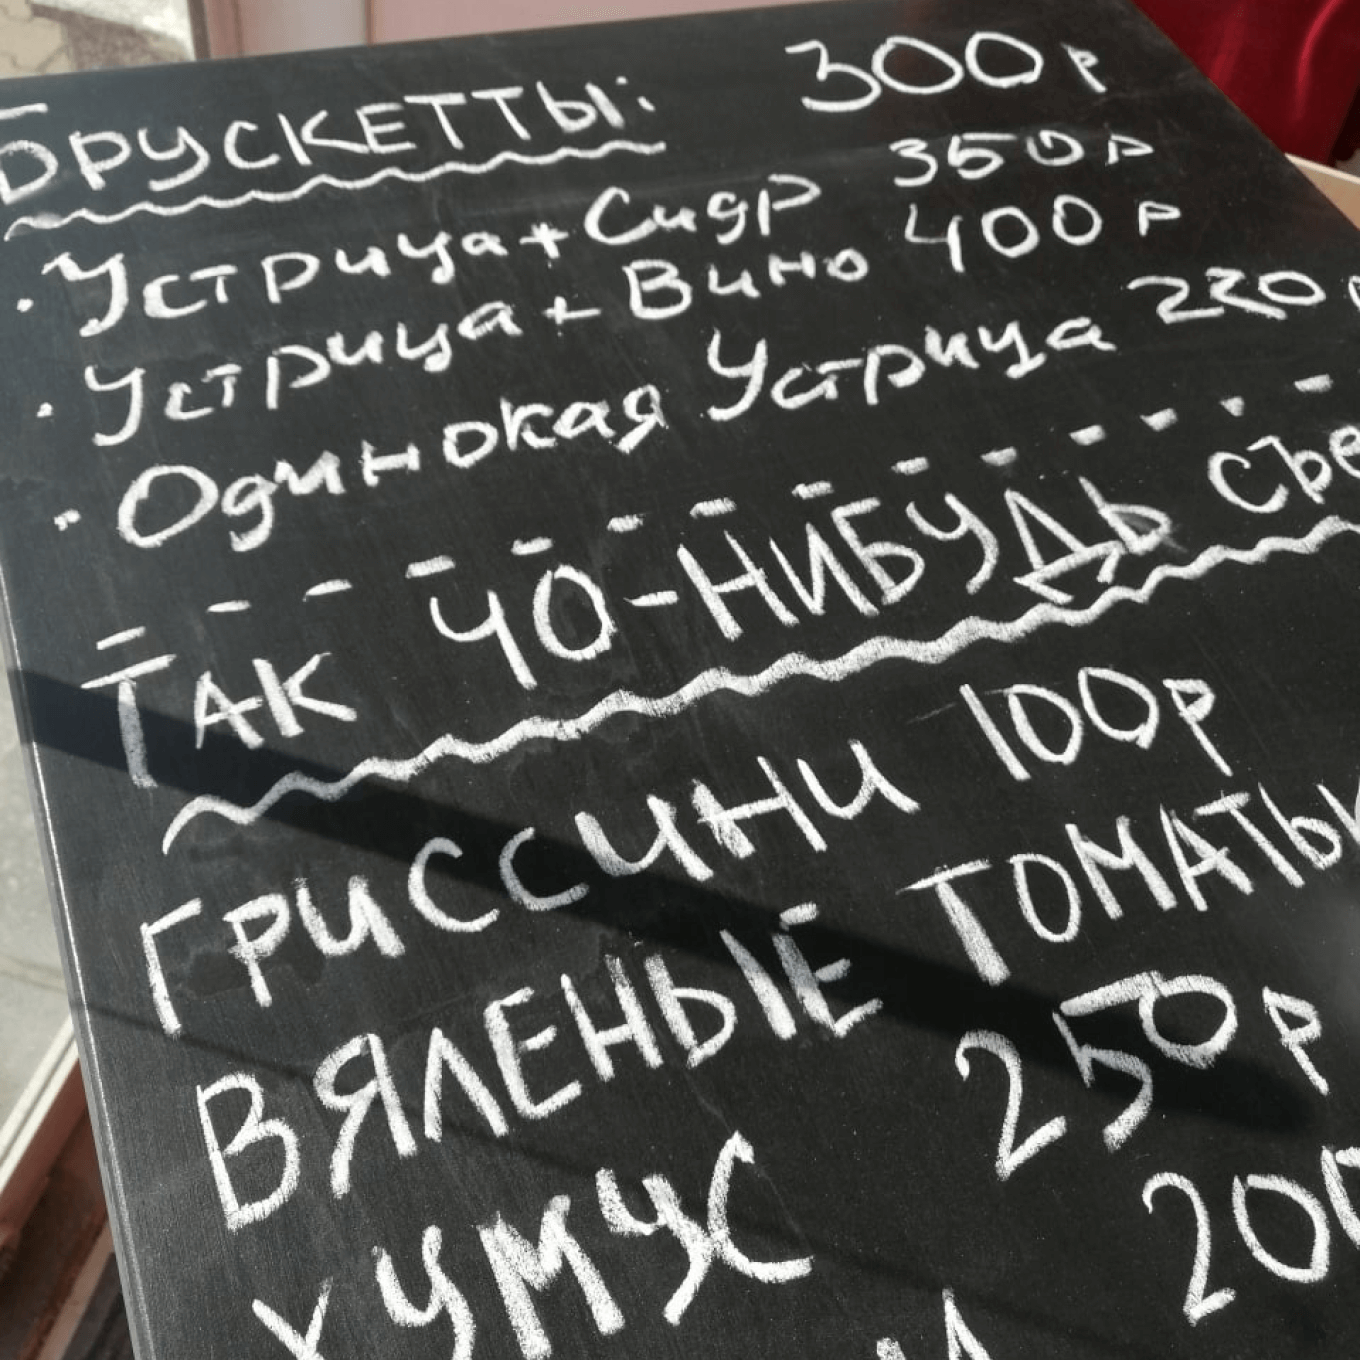 БРУСКЕТТЫ: 300р
• Устрица + Сидр 350р
• Устрица + Вино 400р
• Одинокая Устрица 220р
ТАК ЧО-НИБУДЬ съе
ГРИССИНИ 100р
ВЯЛЕНЫЕ ТОМАТЫ
250р
ХУМУС 200